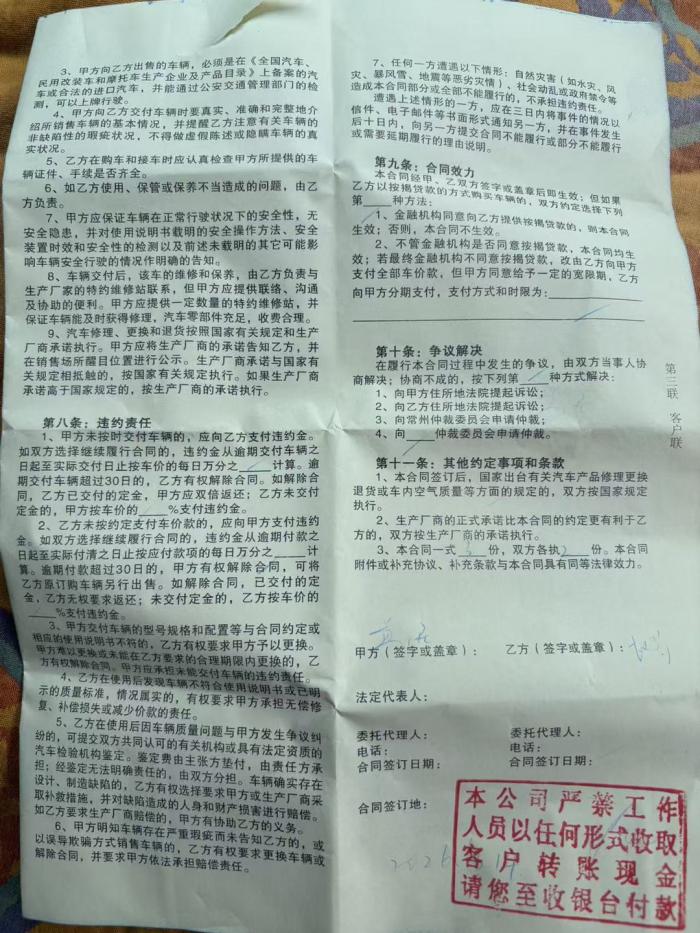 3、甲方向乙方出售的车辆，必须是在《全国汽车、
民用改装车和摩托车生产企业及产品目录》上备案的汽
车或合法的进口汽车，并能通过公安交通管理部门的检
测，可以上牌行驶。
4、甲方向乙方交付车辆时要真实、准确和完整地介
绍所销售车辆的基本情况，并提醒乙方注意有关车辆的
非缺陷性的瑕疵状况，不得做虚假陈述或隐瞒车辆的真
实状况。
5、乙方在购车和接车时应认真检查甲方所提供的车
辆证件、手续是否齐全。
6、如乙方使用、保管或保养不当造成的问题，由乙
方负责。
7、甲方应保证车辆在正常行驶状况下的安全性，无
安全隐患，并对使用说明书载明的安全操作方法、安全
装置时效和安全性的检测以及前述未载明的其它可能影
响车辆安全行驶的情况作明确的告知。
8、车辆交付后，该车的维修和保养，由乙方负责与
生产厂家的特约维修站联系，但甲方应提供联络、沟通
及协助的便利。甲方应提供一定数量的特约维修站，并
保证车辆能及时获得修理，汽车零部件充足，收费合理。
9、汽车修理、更换和退货按照国家有关规定和生产
厂商承诺执行。甲方应将生产厂商的承诺告知乙方，并
在销售场所醒目位置进行公示。生产厂商承诺与国家有
关规定相抵触的，按国家有关规定执行。如果生产厂商
承诺高于国家规定的，按生产厂商的承诺执行。
第八条：违约责任
1、甲方未按时交付车辆的，应向乙方支付违约金。
如双方选择继续履行合同的，违约金从逾期交付车辆之
日起至实际交付日止按车价的每日万分之____计算。逾
期交付车辆超过30日的，乙方有权解除合同。如解除合
同，乙方已交付的定金，甲方应双倍返还；乙方未交付
定金的，甲方按车价的____%支付违约金。
2、乙方未按约定支付车价款的，应向甲方支付违约
金。如双方选择继续履行合同的，违约金从逾期付款之
日起至实际付清之日止按应付款项的每日万分之____计
算。逾期付款超过30日的，甲方有权解除合同，可将
乙方原订购车辆另行出售。如解除合同，已交付的定
金，乙方无权要求返还；未交付定金的，乙方按车价的
____%支付违约金。
3、甲方交付车辆的型号规格和配置等与合同约定或
相应的使用说明书不符的，乙方有权要求甲方予以更换。
甲方难以更换或未能在乙方要求的合理期限内更换的，乙
方有权解除合同。甲方应承担未能交付车辆的违约责任。
4、乙方在使用后发现车辆不符合使用说明书或已明
示的质量标准，情况属实的，有权要求甲方承担无偿修
复、补偿损失或减少价款的责任。
5、乙方在使用后因车辆质量问题与甲方发生争议纠
纷的，可提交双方共同认可的有关机构或具有法定资质的
汽车检验机构鉴定。鉴定费由主张方垫付，由责任方承
担；经鉴定无法明确责任的，由双方分担。车辆确实存在
设计、制造缺陷的，乙方有权选择要求甲方或生产厂商采
取补救措施，并对缺陷造成的人身和财产损害进行赔偿。
如乙方要求生产厂商赔偿的，甲方有协助乙方的义务。
6、甲方明知车辆存在严重瑕疵而未告知乙方的，或
以误导欺骗方式销售车辆的，乙方有权要求更换车辆或
解除合同，并要求甲方依法承担赔偿责任。
7、任何一方遭遇以下情形：自然灾害（如水灾、风
灾、暴风雪、地震等恶劣灾情）、社会动乱或政府禁令等
造成本合同部分或全部不能履行的，不承担违约责任。
遭遇上述情形的一方，应在三日内将事件的情况以
信件、电子邮件等书面形式通知另一方，并在事件发生
后十日内，向另一方提交合同不能履行或部分不能履行
或需要延期履行的理由说明。
第九条：合同效力
本合同经甲、乙双方签字或盖章后即生效；但如果
乙方以按揭贷款的方式购买车辆的，双方约定选择下列
第____种方法：
1、金融机构同意向乙方提供按揭贷款的，则本合同
生效；否则，本合同不生效。
2、不管金融机构是否同意按揭贷款，本合同均生
效；若最终金融机构不同意按揭贷款，改由乙方向甲方
支付全部车价款，但甲方同意给予一定的宽限期，乙方
向甲方分期支付，支付方式和时限为：____
第十条：争议解决
在履行本合同过程中发生的争议，由双方当事人协
商解决；协商不成的，按下列第____种方式解决：
1、向甲方住所地法院提起诉讼；
2、向乙方住所地法院提起诉讼；
3、向常州仲裁委员会申请仲裁。
4、向____仲裁委员会申请仲裁。
第十一条：其他约定事项和条款
1、本合同签订后，国家出台有关汽车产品修理更换
退货或车内空气质量等方面的规定，双方按国家规定
执行。
2、生产厂商的正式承诺比本合同的约定更有利于乙
方的，双方按生产厂商的承诺执行。
3、本合同一式____份，双方各执2份。本合同
附件或补充协议、补充条款与本合同具有同等法律效力。
甲方（签字或盖章）： 乙方（签字或盖章）：
法定代表人：
委托代理人： 委托代理人：
电话： 电话：
合同签订日期： 合同签订日期：
合同签订地：
第三联 客户联
本公司严禁工作
人员以任何形式收取
客户转账现金
请您至收银台付款